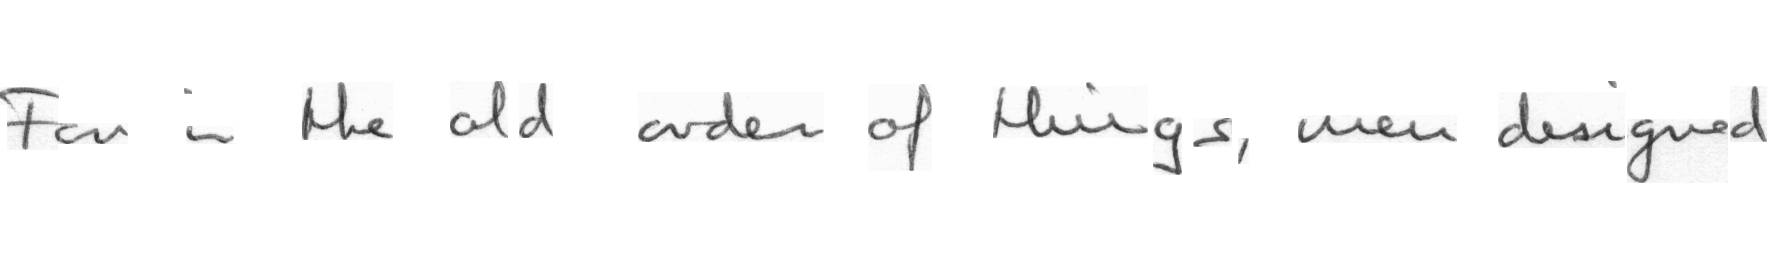 For in the old order of things, men designed